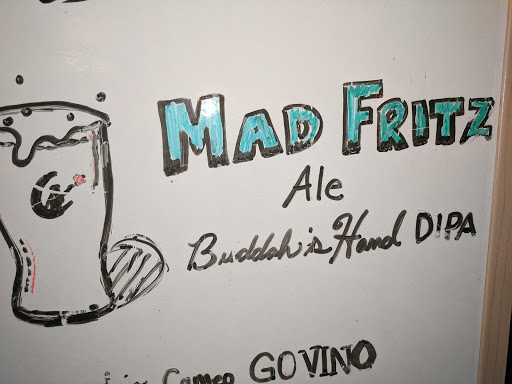 MAD FRITZ
Ale
Buddah's Hand DIPA
Cameo GOVINO